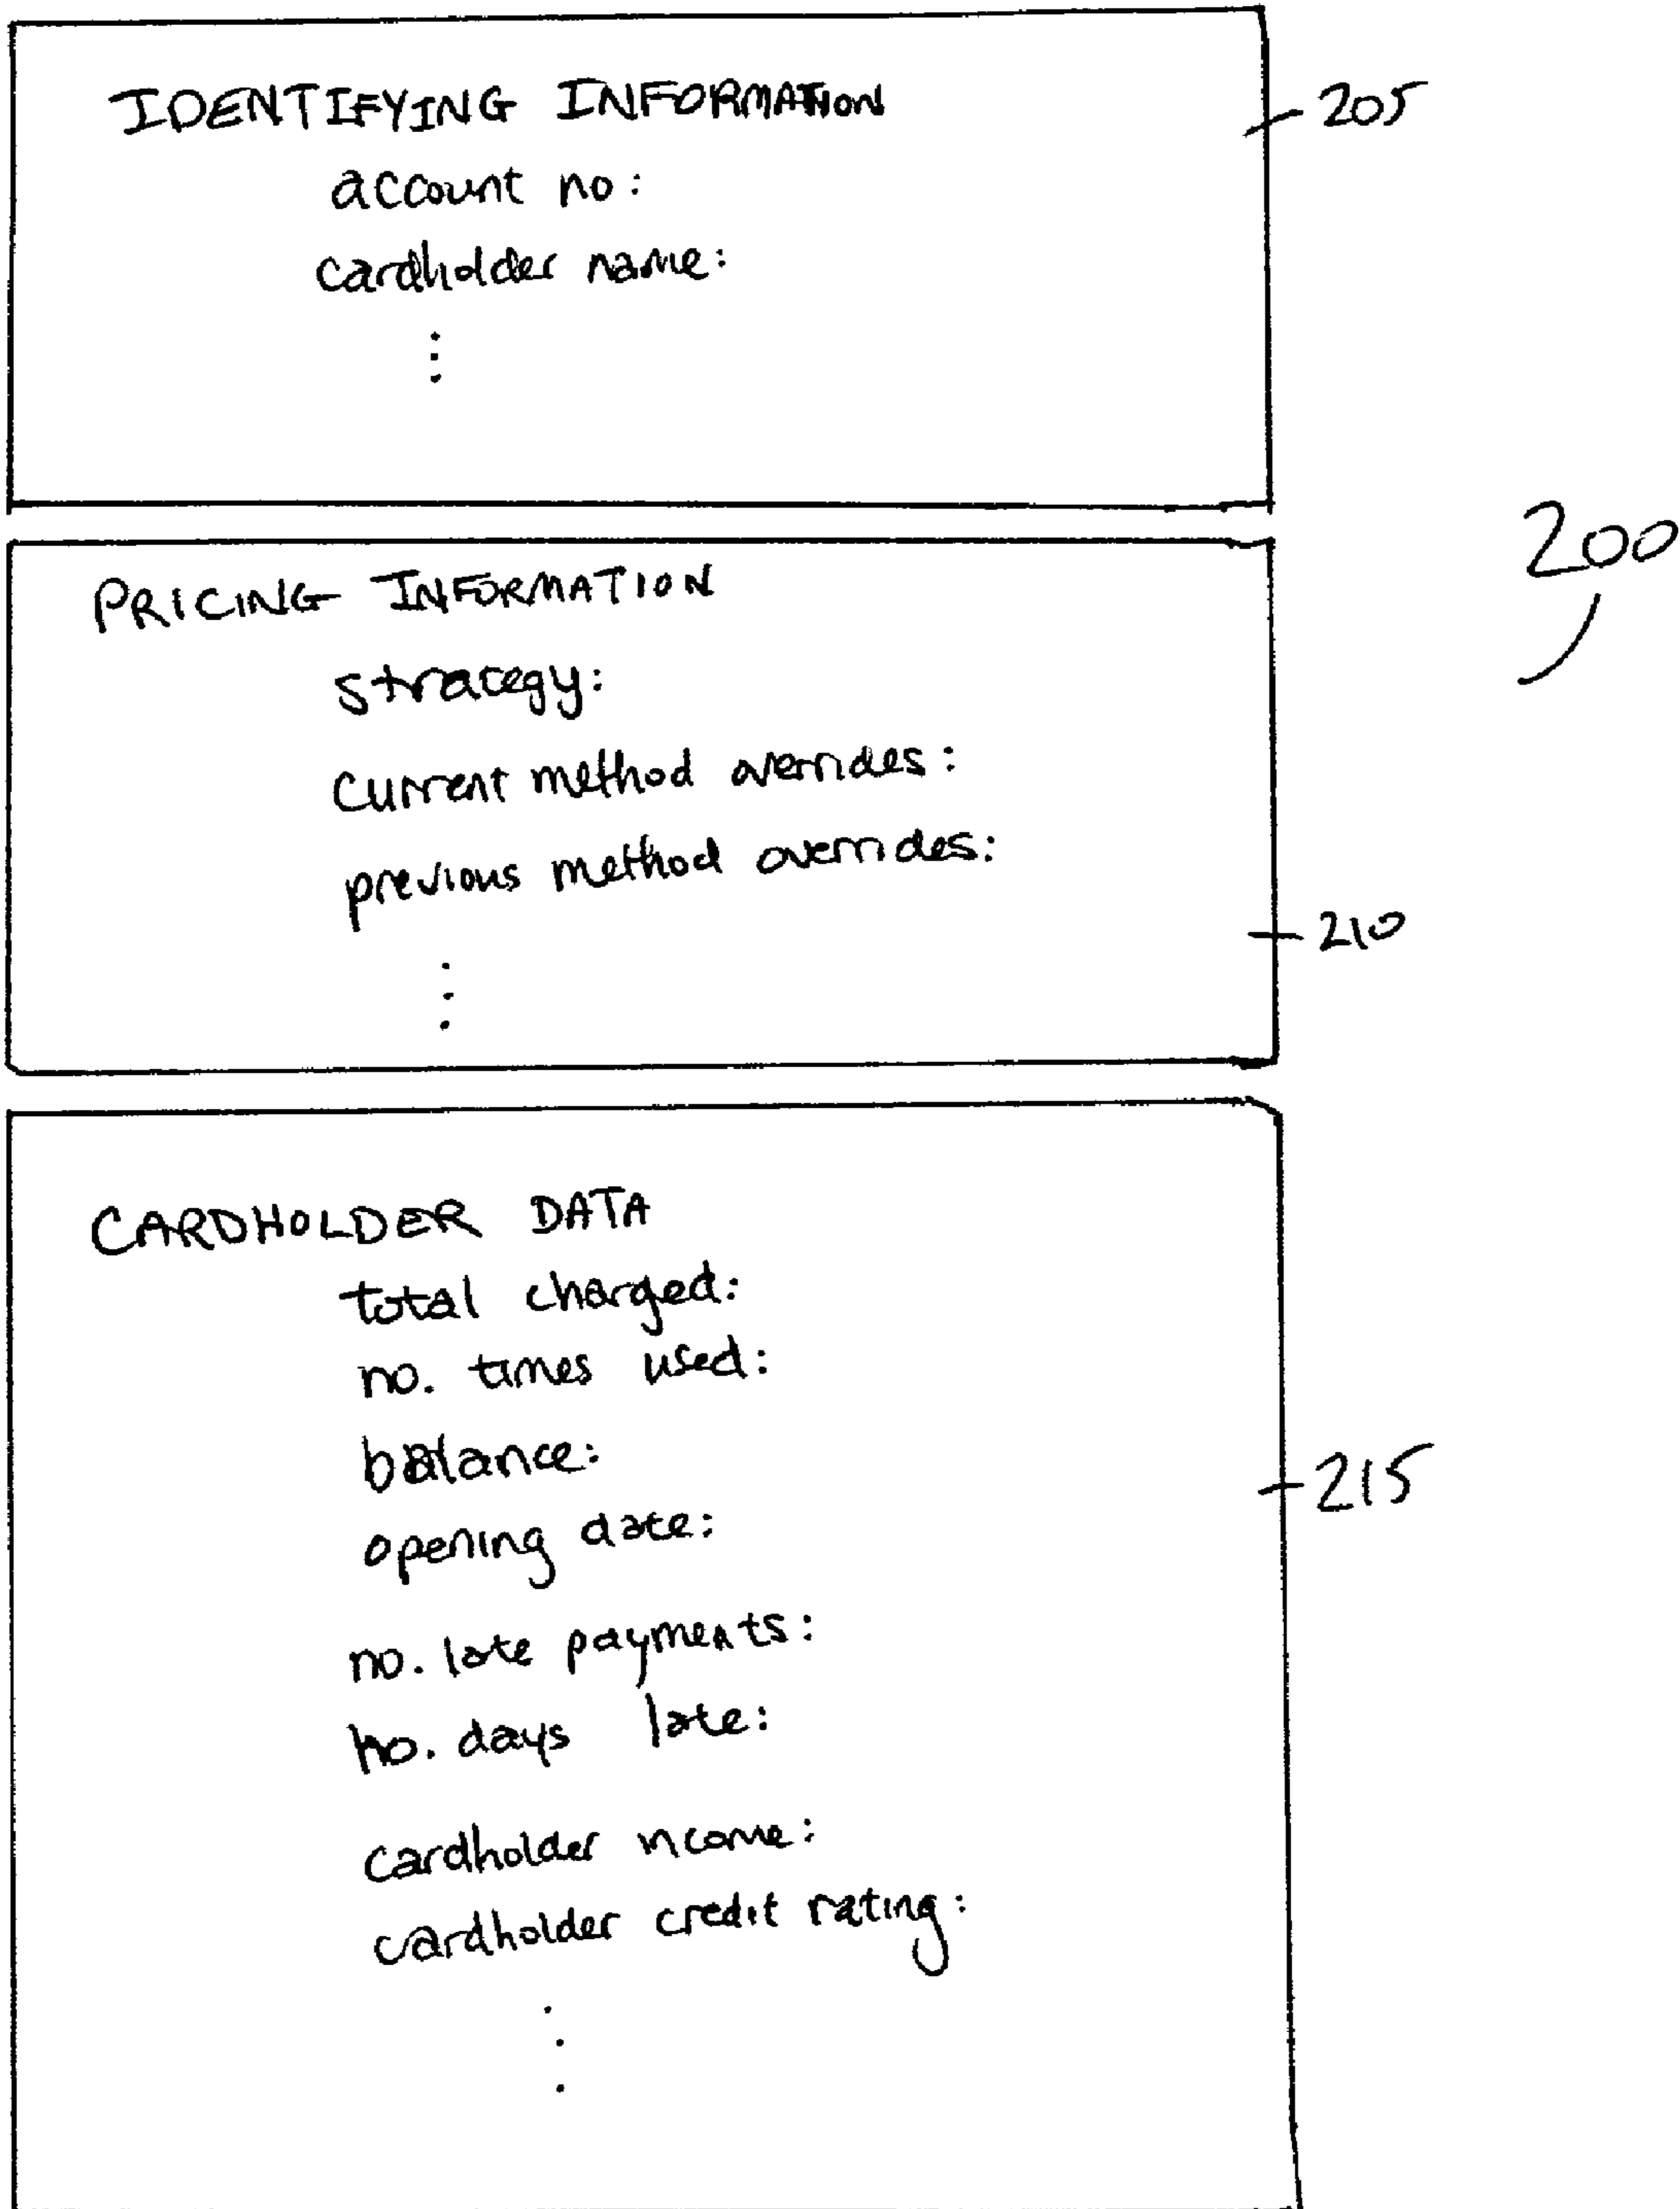 IDENTIFYING INFORMATION
205
account no:
cardholder name:
200
PRICING INFORMATION
strategy:
current method overrides:
previous method overrides:
210
CARDHOLDER DATA
total charged:
no. times used:
balance:
215
opening date:
no. late payments:
no. days late:
cardholder income:
cardholder credit rating: